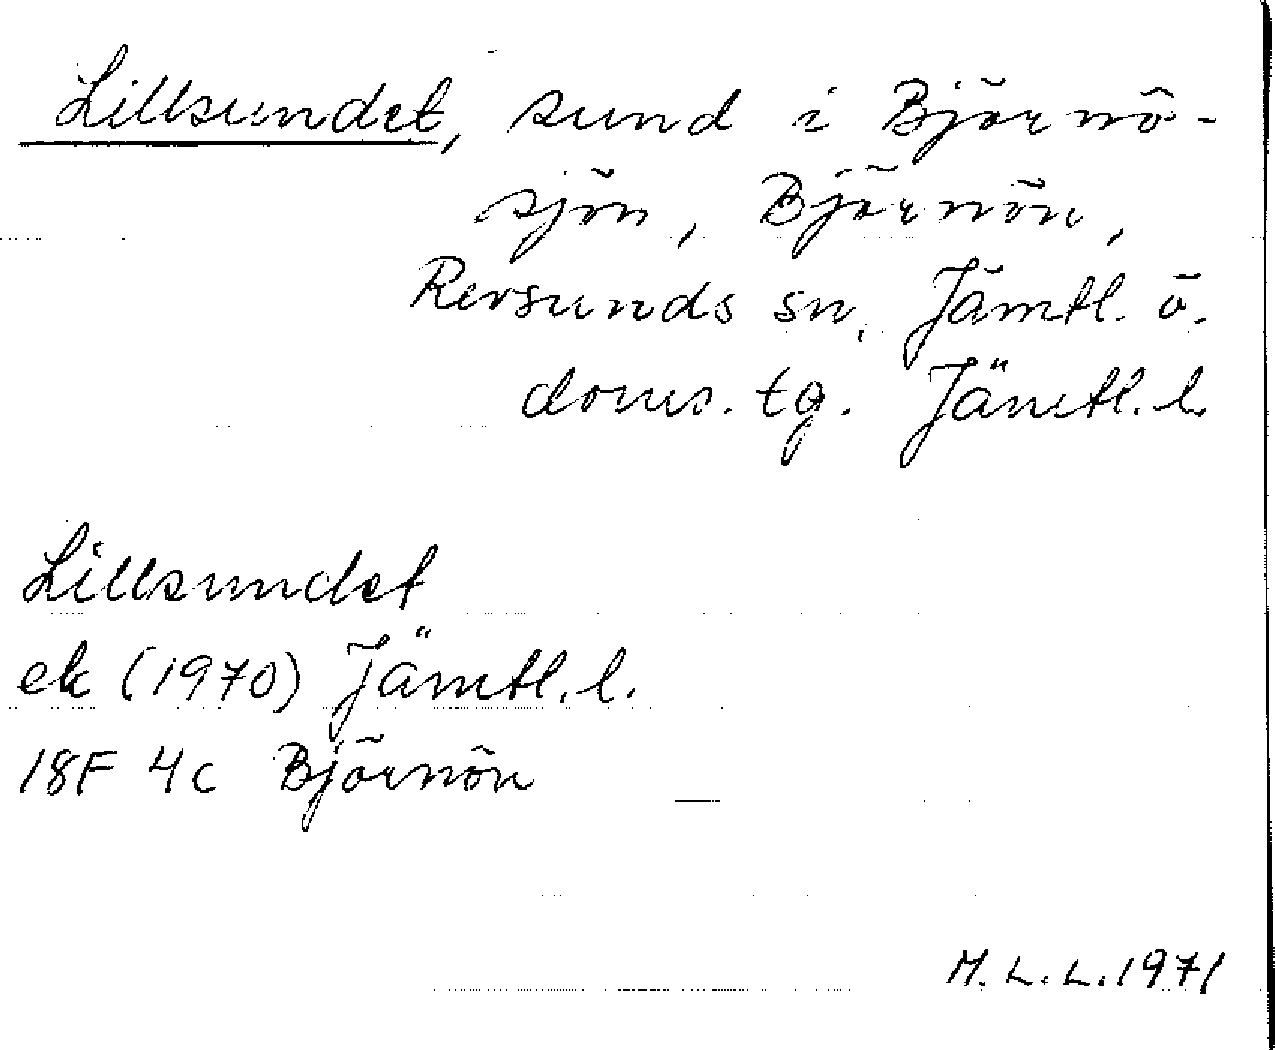 Lillsundet, sund i Björnö-
sjön, Björnön,
Revsunds sn, Jämtl. ö.
doms. tg. Jämtl. l.
Lillsundet
ek (1970) Jämtl. l.
18F 4c Björnön
M. L. L. 1971